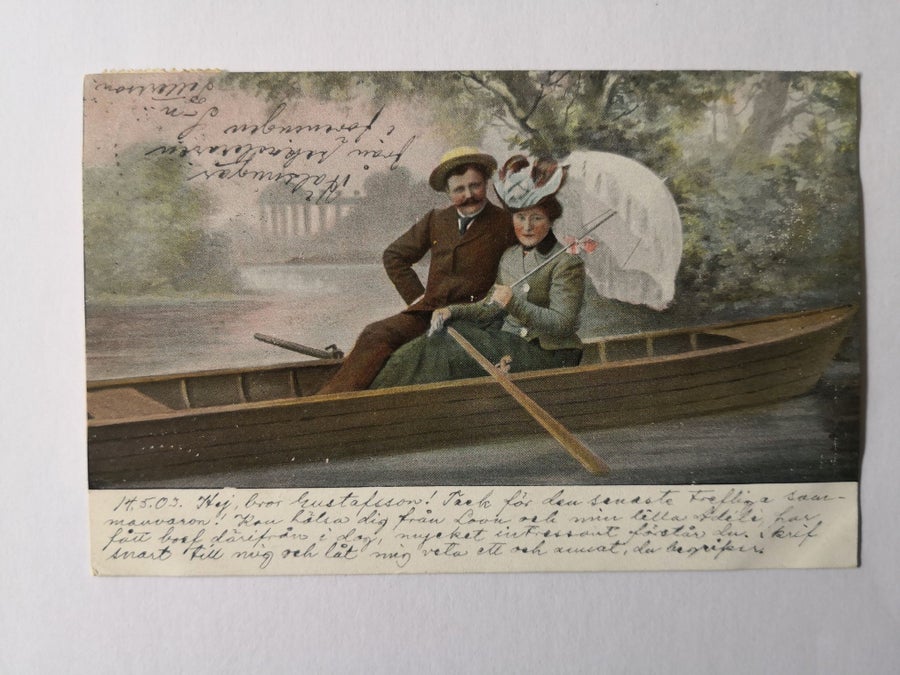 14.5.03. Hej, bror Gustafsson! Tack för den senaste trefliga sam-
manvaron! Kan hälsa dig från Lovn och min lilla Adéle, har
fått bref därifrån i dag, mycket intressant förstår du. Skrif
snart till mig och låt mig veta ett och annat, du begriper.
Hälsningar
från sekreteraren
i föreningen
J-n
Pettersson